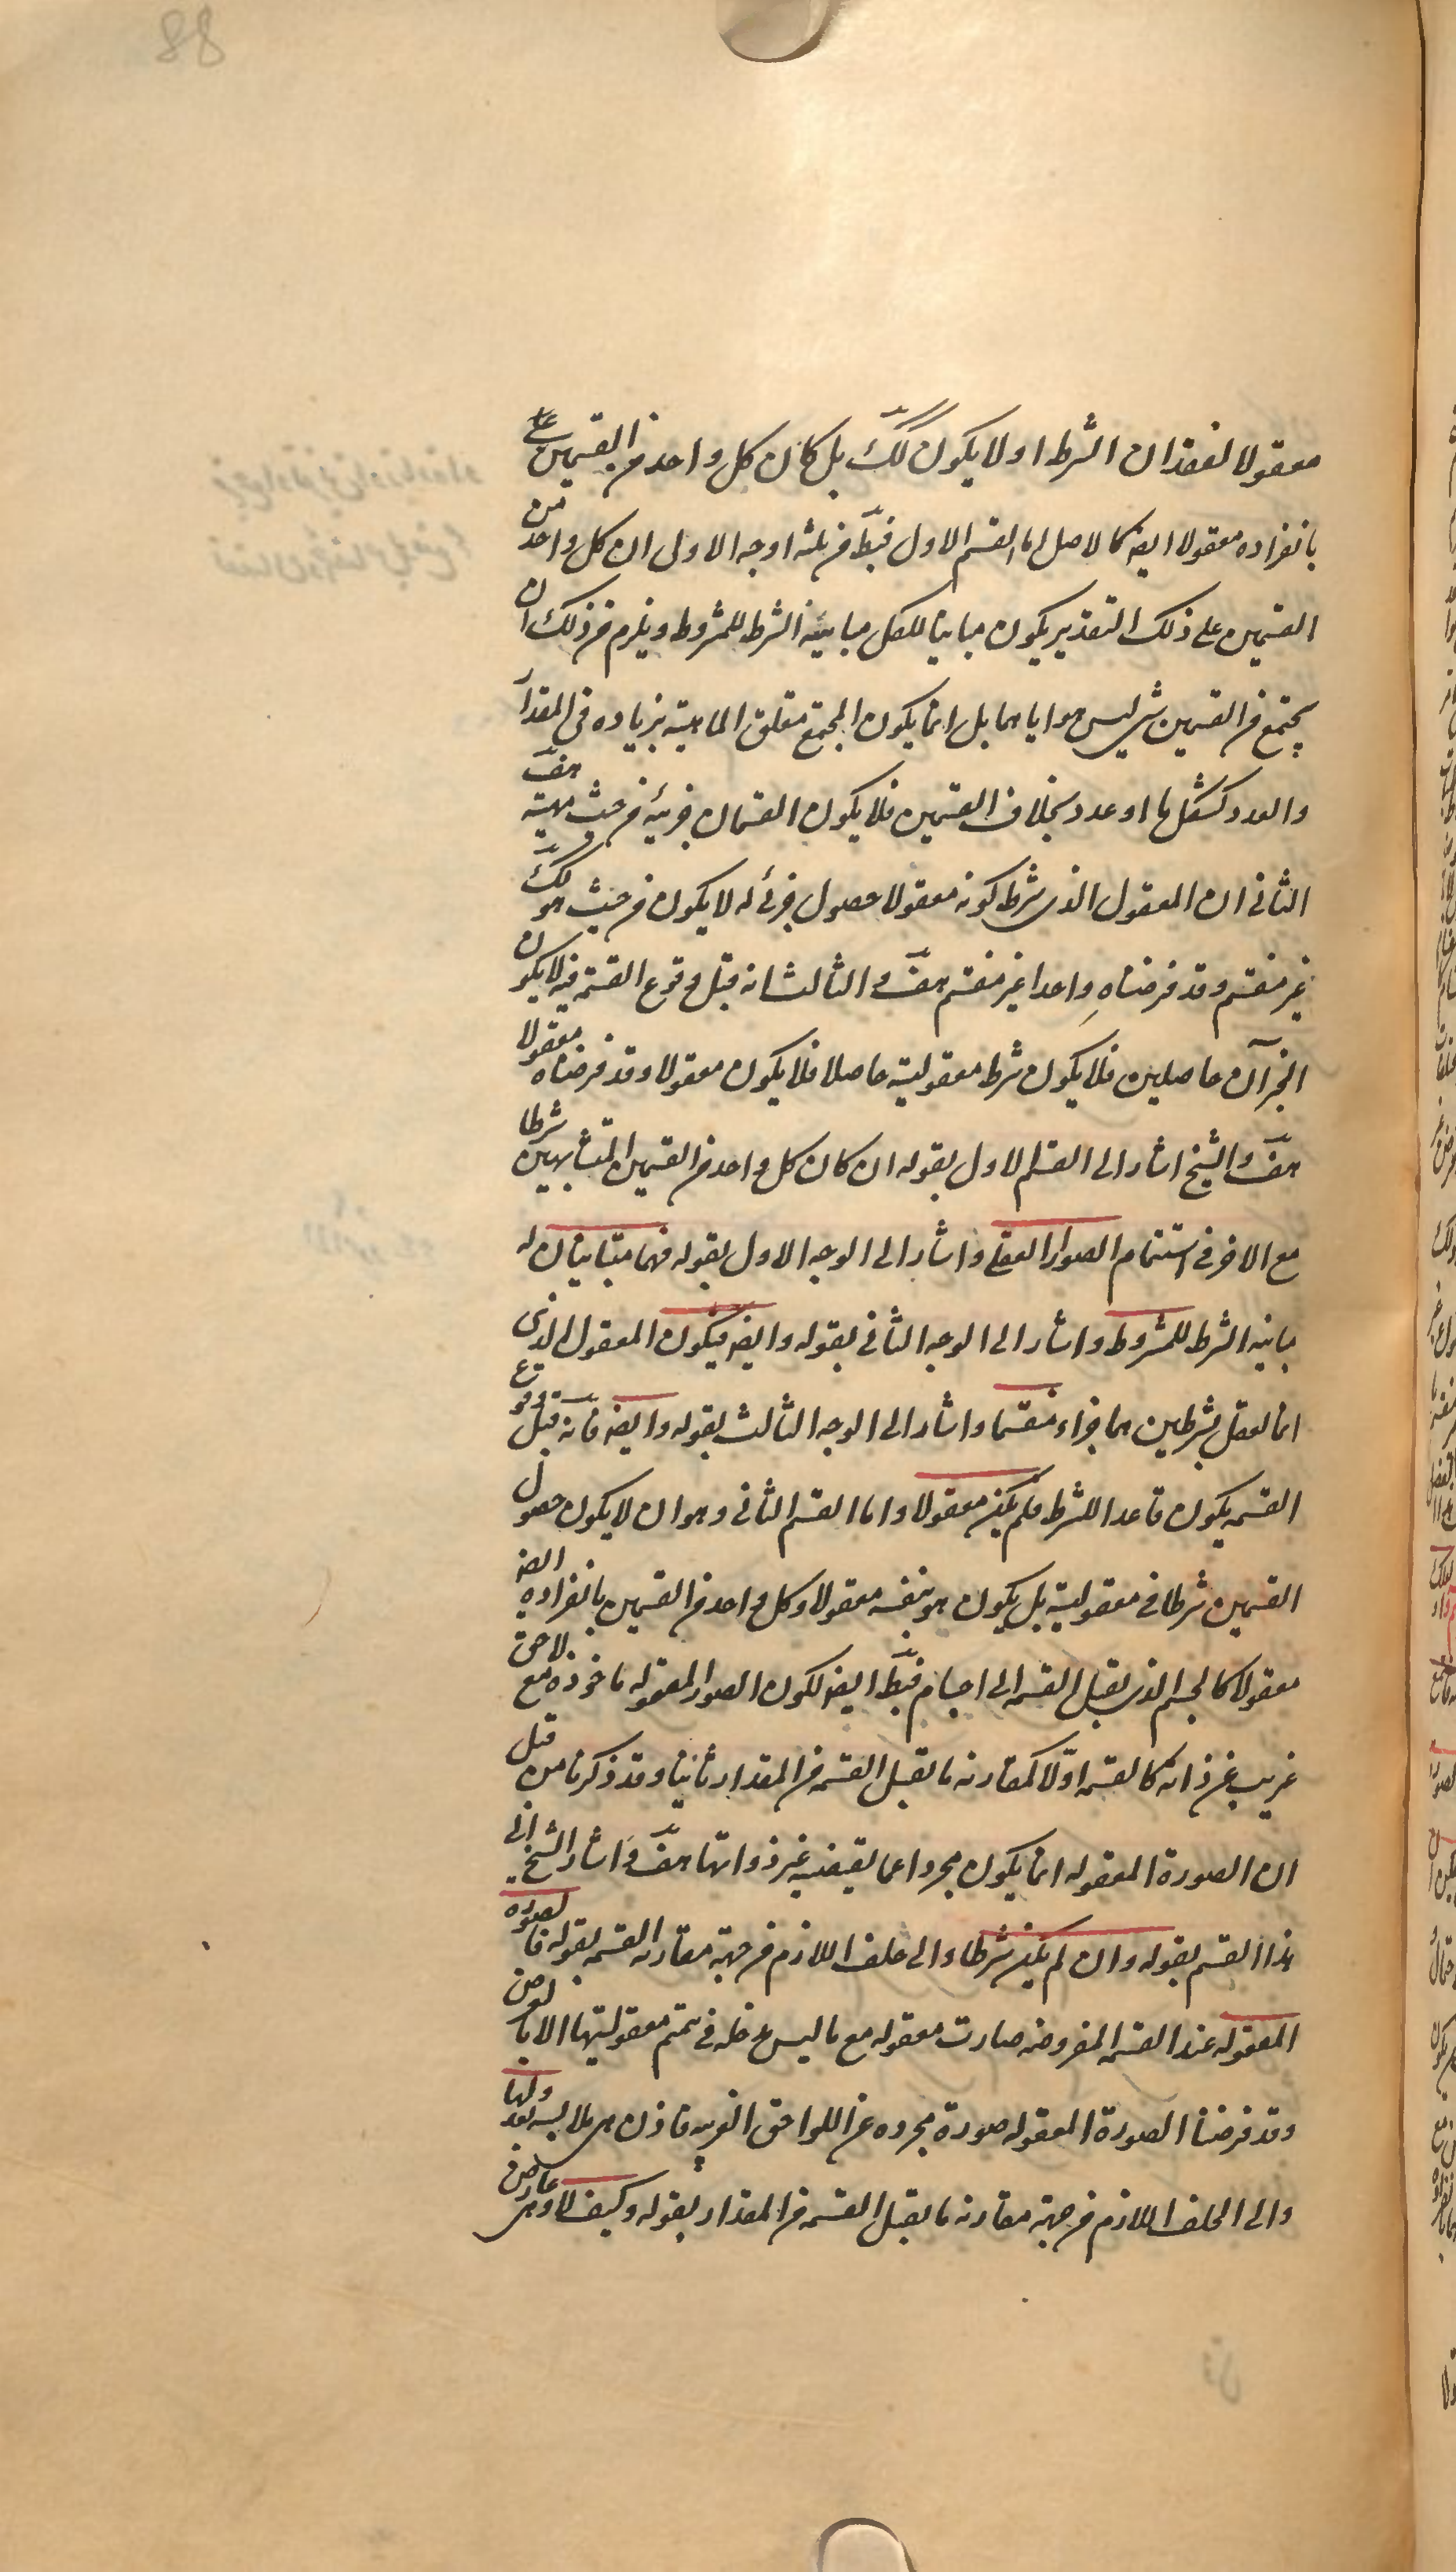 88
معقولا لفقدان الشرط او لا يكون كك بل كان كل واحد من القسمين على
بانفراده معقولا ايضا كالاصل اما القسم الاول فبط من ثلثه اوجه الاول ان كل واحد من
القسمين على ذلك التقدير يكون مباينا للكل مباينة الشرط للمشروط ويلزم من ذلك ان
يجتمع من القسمين شى ليس هو اياهما بل انما يكون المجتمع متعلق الماهية بزياده فى المقدار
والعدد كشكل ما او عدد بخلاف القسمين فلا يكون القسمان جزئيه من حيث مهيته هف
الثانى ان المعقول الذى شرط كونه معقولا حصول جزئه له لا يكون من حيث هو كك
غير منقسم وقد فرضناه واحدا غير منقسم هف والثالث انه قبل وقوع القسمة فيه لا يكون
الجزآن حاصلين فلا يكون شرط معقوليته حاصلا فلا يكون معقولا وقد فرضناه معقولا
هف والشيخ اشار الى القسم الاول بقوله ان كان كل واحد من القسمين المتشابهين شرطا
مع الاخر فى استتمام الصور العقلى واشار الى الوجه الاول بقوله فهما متباينان له
مباينه الشرط للمشروط واشار الى الوجه الثانى بقوله وايضا فيكون المعقول الذى
انما يعقل بشرطين هما جزاه منقسما واشار الى الوجه الثالث بقوله وايضا فانه قبل وقوع
القسمه يكون فاقدا للشرط فلم يكن معقولا واما القسم الثانى وهو ان لا يكون حصول
القسمين شرطا فى معقوليته بل يكون هو بنفسه معقولا وكل واحد من القسمين بانفراده ايضا
معقولا كالجسم الذى يقبل القسمه الى اجسام فبط ايضا لكون الصور المعقوله ماخوذه مع لاحق
غريب عن ذاته كالقسمه اولا كمقارنه ما يقبل القسمه من المقدار ثانيا وقد ذكرنا من قبل
ان الصورة المعقوله انما يكون مجردا عما يقتضيه غير ذواتها هف واشار الشيخ الى
هذا القسم بقوله وان لم يكن شرطا والى خلف اللازم من جهة مقارنه القسمه بقوله فالصوره
المعقوله عند القسمه المفروضه صارت معقوله مع ما ليس مدخله فى تتمم معقوليتها الا بالعرض
وقد فرضنا الصورة المعقوله صورة مجرده عن اللواحق الغريبه فاذن هى ملابسه بعد ولها
والى الخلف اللازم من جهة مقارنه ما يقبل القسمه من المقدار بقوله وكيف لا وهى عارض